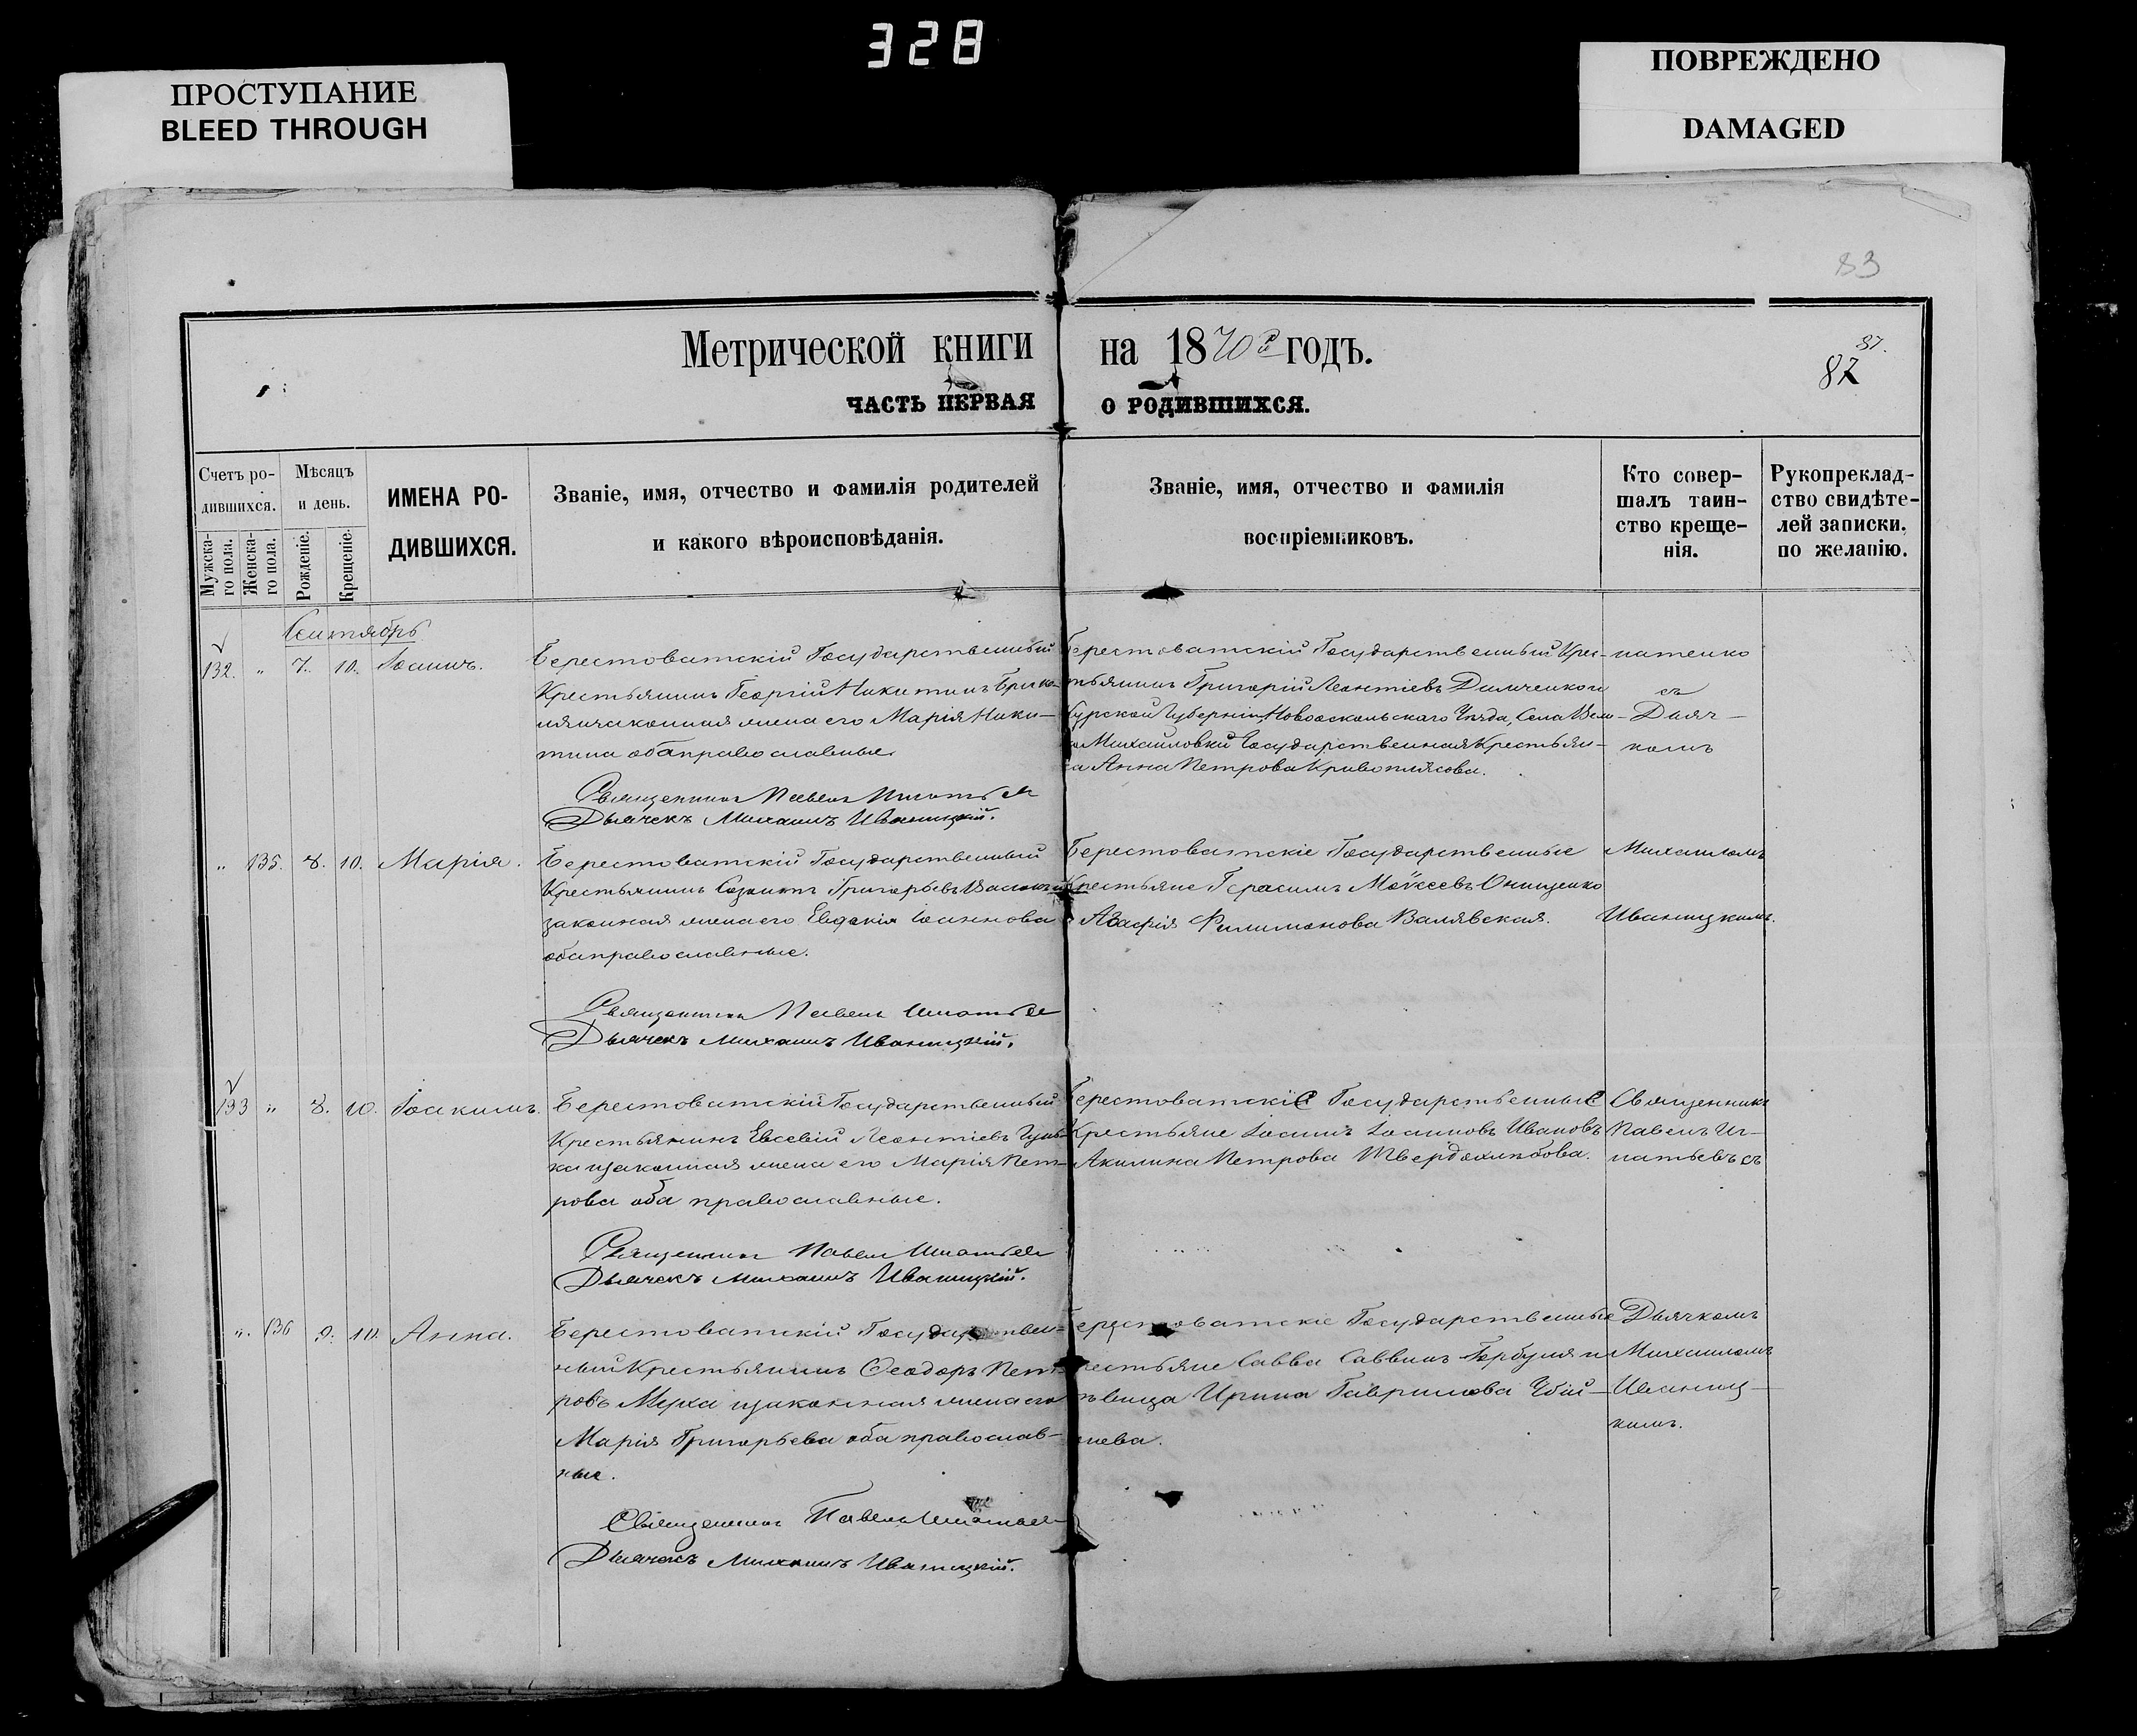 328
ПРОСТУПАНИЕ
BLEED THROUGH
ПОВРЕЖДЕНО
DAMAGED
83
Метрической книги на 1870 годъ.
87.
82
ЧАСТЬ ПЕРВАЯ О РОДИВШИХСЯ.
Счетъ родившихся.
Мужскаго пола.
Женскаго пола.
Мѣсяцъ и день.
Рожденіе.
Крещеніе.
ИМЕНА РОДИВШИХСЯ.
Званіе, имя, отчество и фамилія родителей
и какого вѣроисповѣданія.
Званіе, имя, отчество и фамилія
воспріемниковъ.
Кто совер-
шалъ таин-
ство креще-
нія.
Рукопреклад-
ство свидѣте-
лей записки.
по желанію.
Сентябрь
132. " 7. 10. Іоаннъ.
Берестоватскій Государственный
Крестьянинъ Георгій Никитинъ
законная жена его Марія Ники-
тина оба православные.
Священникъ Павелъ Игнатьев
Дьячекъ Михаилъ Иваницкій.
Берестоватскій Государственный Крес-
тьянинъ Григорій Леонтіевъ Димченко и
Курской Губерніи, Новооскольскаго Уѣзда, Села
Михайловки Государственная Крестьян-
ка Анна Петрова Кривоплясова.
натенко
съ
Дьяч-
комъ
" 135. 8. 10. Марія.
Берестоватскій Государственный
Крестьянинъ Созонтъ Григорьевъ
законная жена его Евдокія Іоаннова
оба православные.
Священникъ Павелъ Игнатьев
Дьячекъ Михаилъ Иваницкій.
Берестоватскіе Государственные
Крестьяне Герасимъ Моѵсеевъ Онищенко
Агафія Филимонова Валявская.
Михаиломъ
Иваницкимъ.
133 " 8. 10. Іоакимъ.
Берестоватскій Государственный
Крестьянинъ Евсевій Леонтіевъ
ка и законная жена его Марія Пет-
рова оба православные.
Священникъ Павелъ Игнатьев
Дьячекъ Михаилъ Иваницкій.
Берестоватскіе Государственные
Крестьяне Іоаннъ Іоанновъ Ивановъ
Акилина Петрова Твердохлѣбова.
Священникъ
Павелъ Иг-
натьевъ съ
" 136 9. 10. Анна.
Берестоватскій Государствен-
ный Крестьянинъ Ѳеодоръ Пет-
ровъ Муха и законная жена его
Марія Григорьева оба православ-
ные.
Священникъ Павелъ Игнатьев
Дьячекъ Михаилъ Иваницкій.
Берестоватскіе Государственные
Крестьяне Савва Саввинъ Горбуля и
дѣвица Ирина Гаврилова Убій-
Дьячкомъ
Михаиломъ
Иваниц-
кимъ.